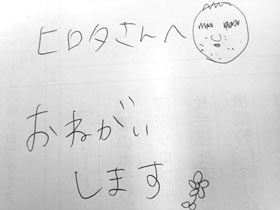 ヒロタさんへ
おねがい
します